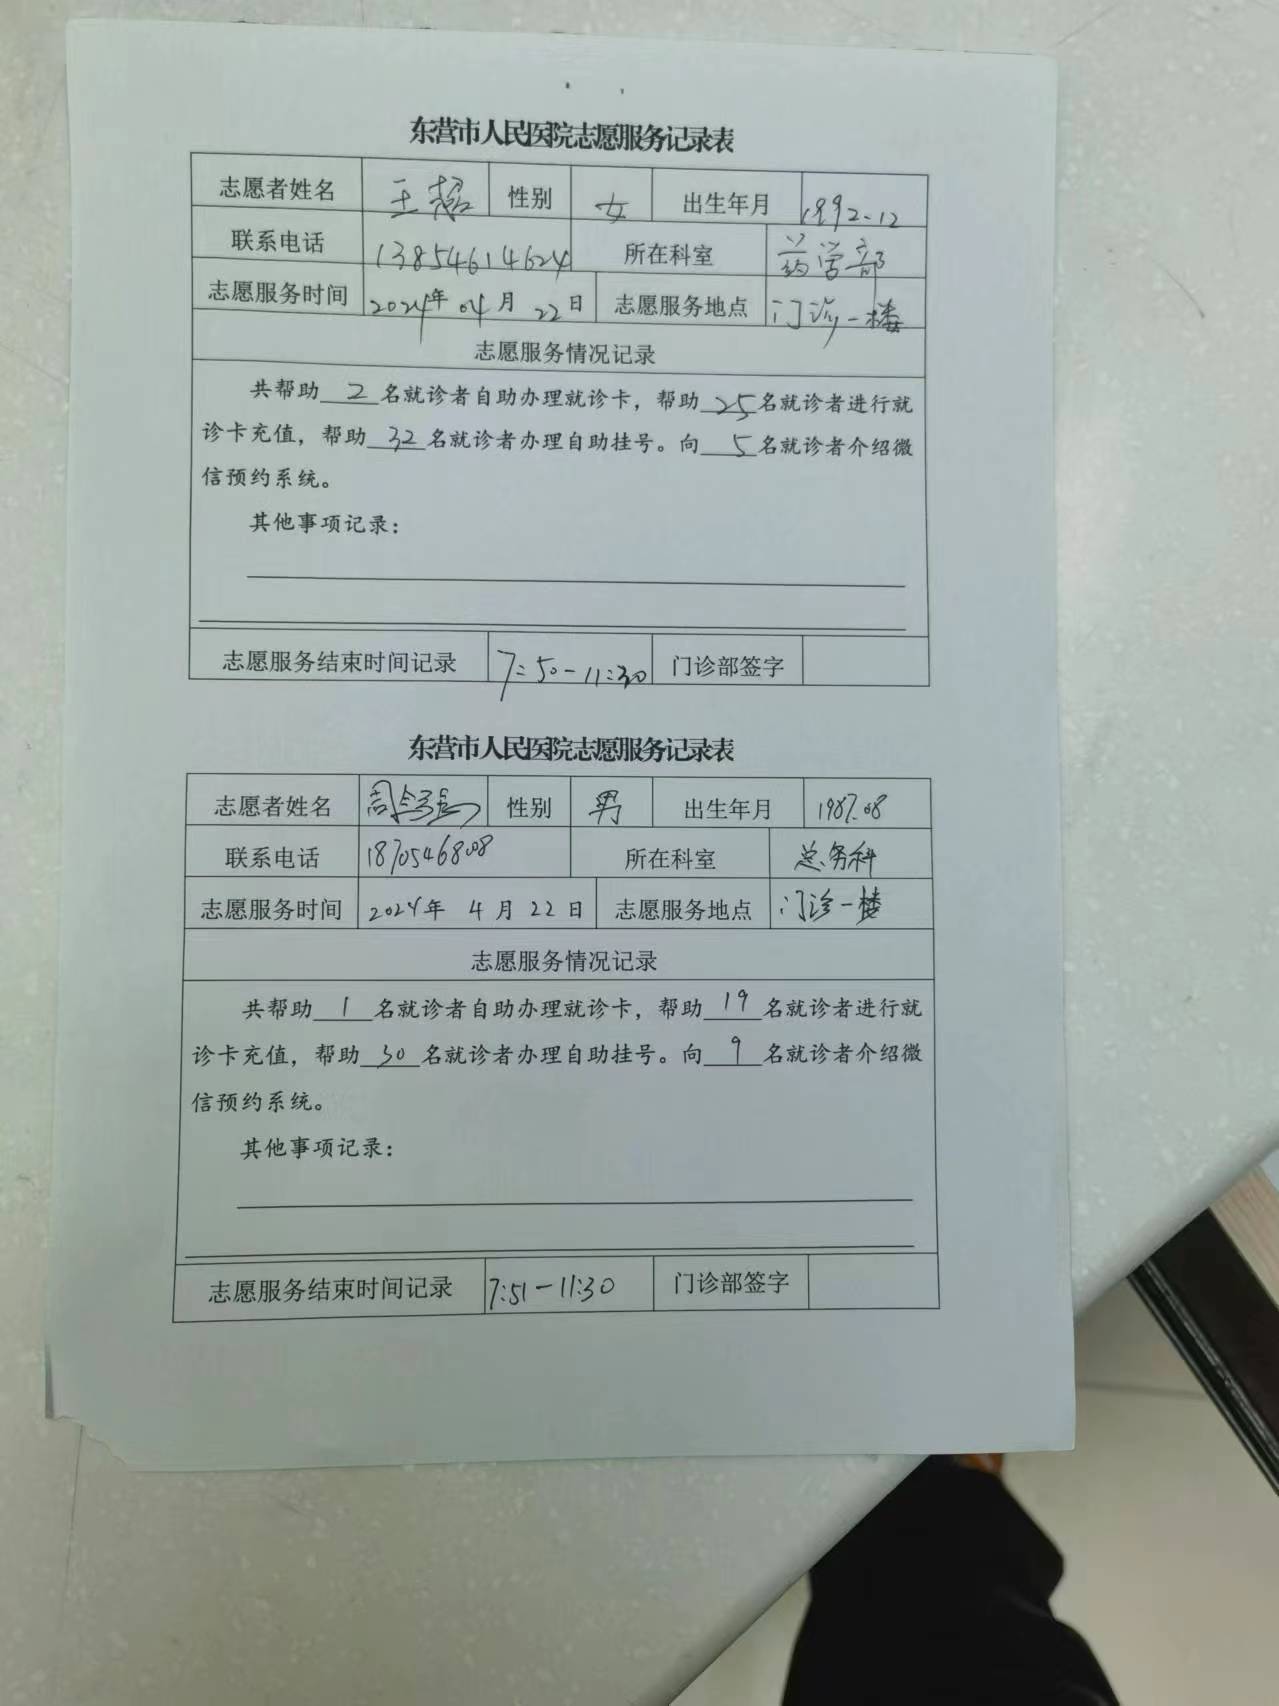 东营市人民医院志愿服务记录表
志愿者姓名 王超 性别 女 出生年月 1992.12
联系电话 13854614624 所在科室 药学部
志愿服务时间 2024年 04月 22日 志愿服务地点 门诊一楼
志愿服务情况记录
共帮助 2 名就诊者自助办理就诊卡，帮助 25 名就诊者进行就
诊卡充值，帮助 32 名就诊者办理自助挂号。向 5 名就诊者介绍微
信预约系统。
其他事项记录：
志愿服务结束时间记录 7:50-11:30 门诊部签字
东营市人民医院志愿服务记录表
志愿者姓名 周 性别 男 出生年月 1987.08
联系电话 18705468008 所在科室 总务科
志愿服务时间 2024年 4月 22日 志愿服务地点 门诊一楼
志愿服务情况记录
共帮助 1 名就诊者自助办理就诊卡，帮助 19 名就诊者进行就
诊卡充值，帮助 30 名就诊者办理自助挂号。向 9 名就诊者介绍微
信预约系统。
其他事项记录：
志愿服务结束时间记录 7:51-11:30 门诊部签字